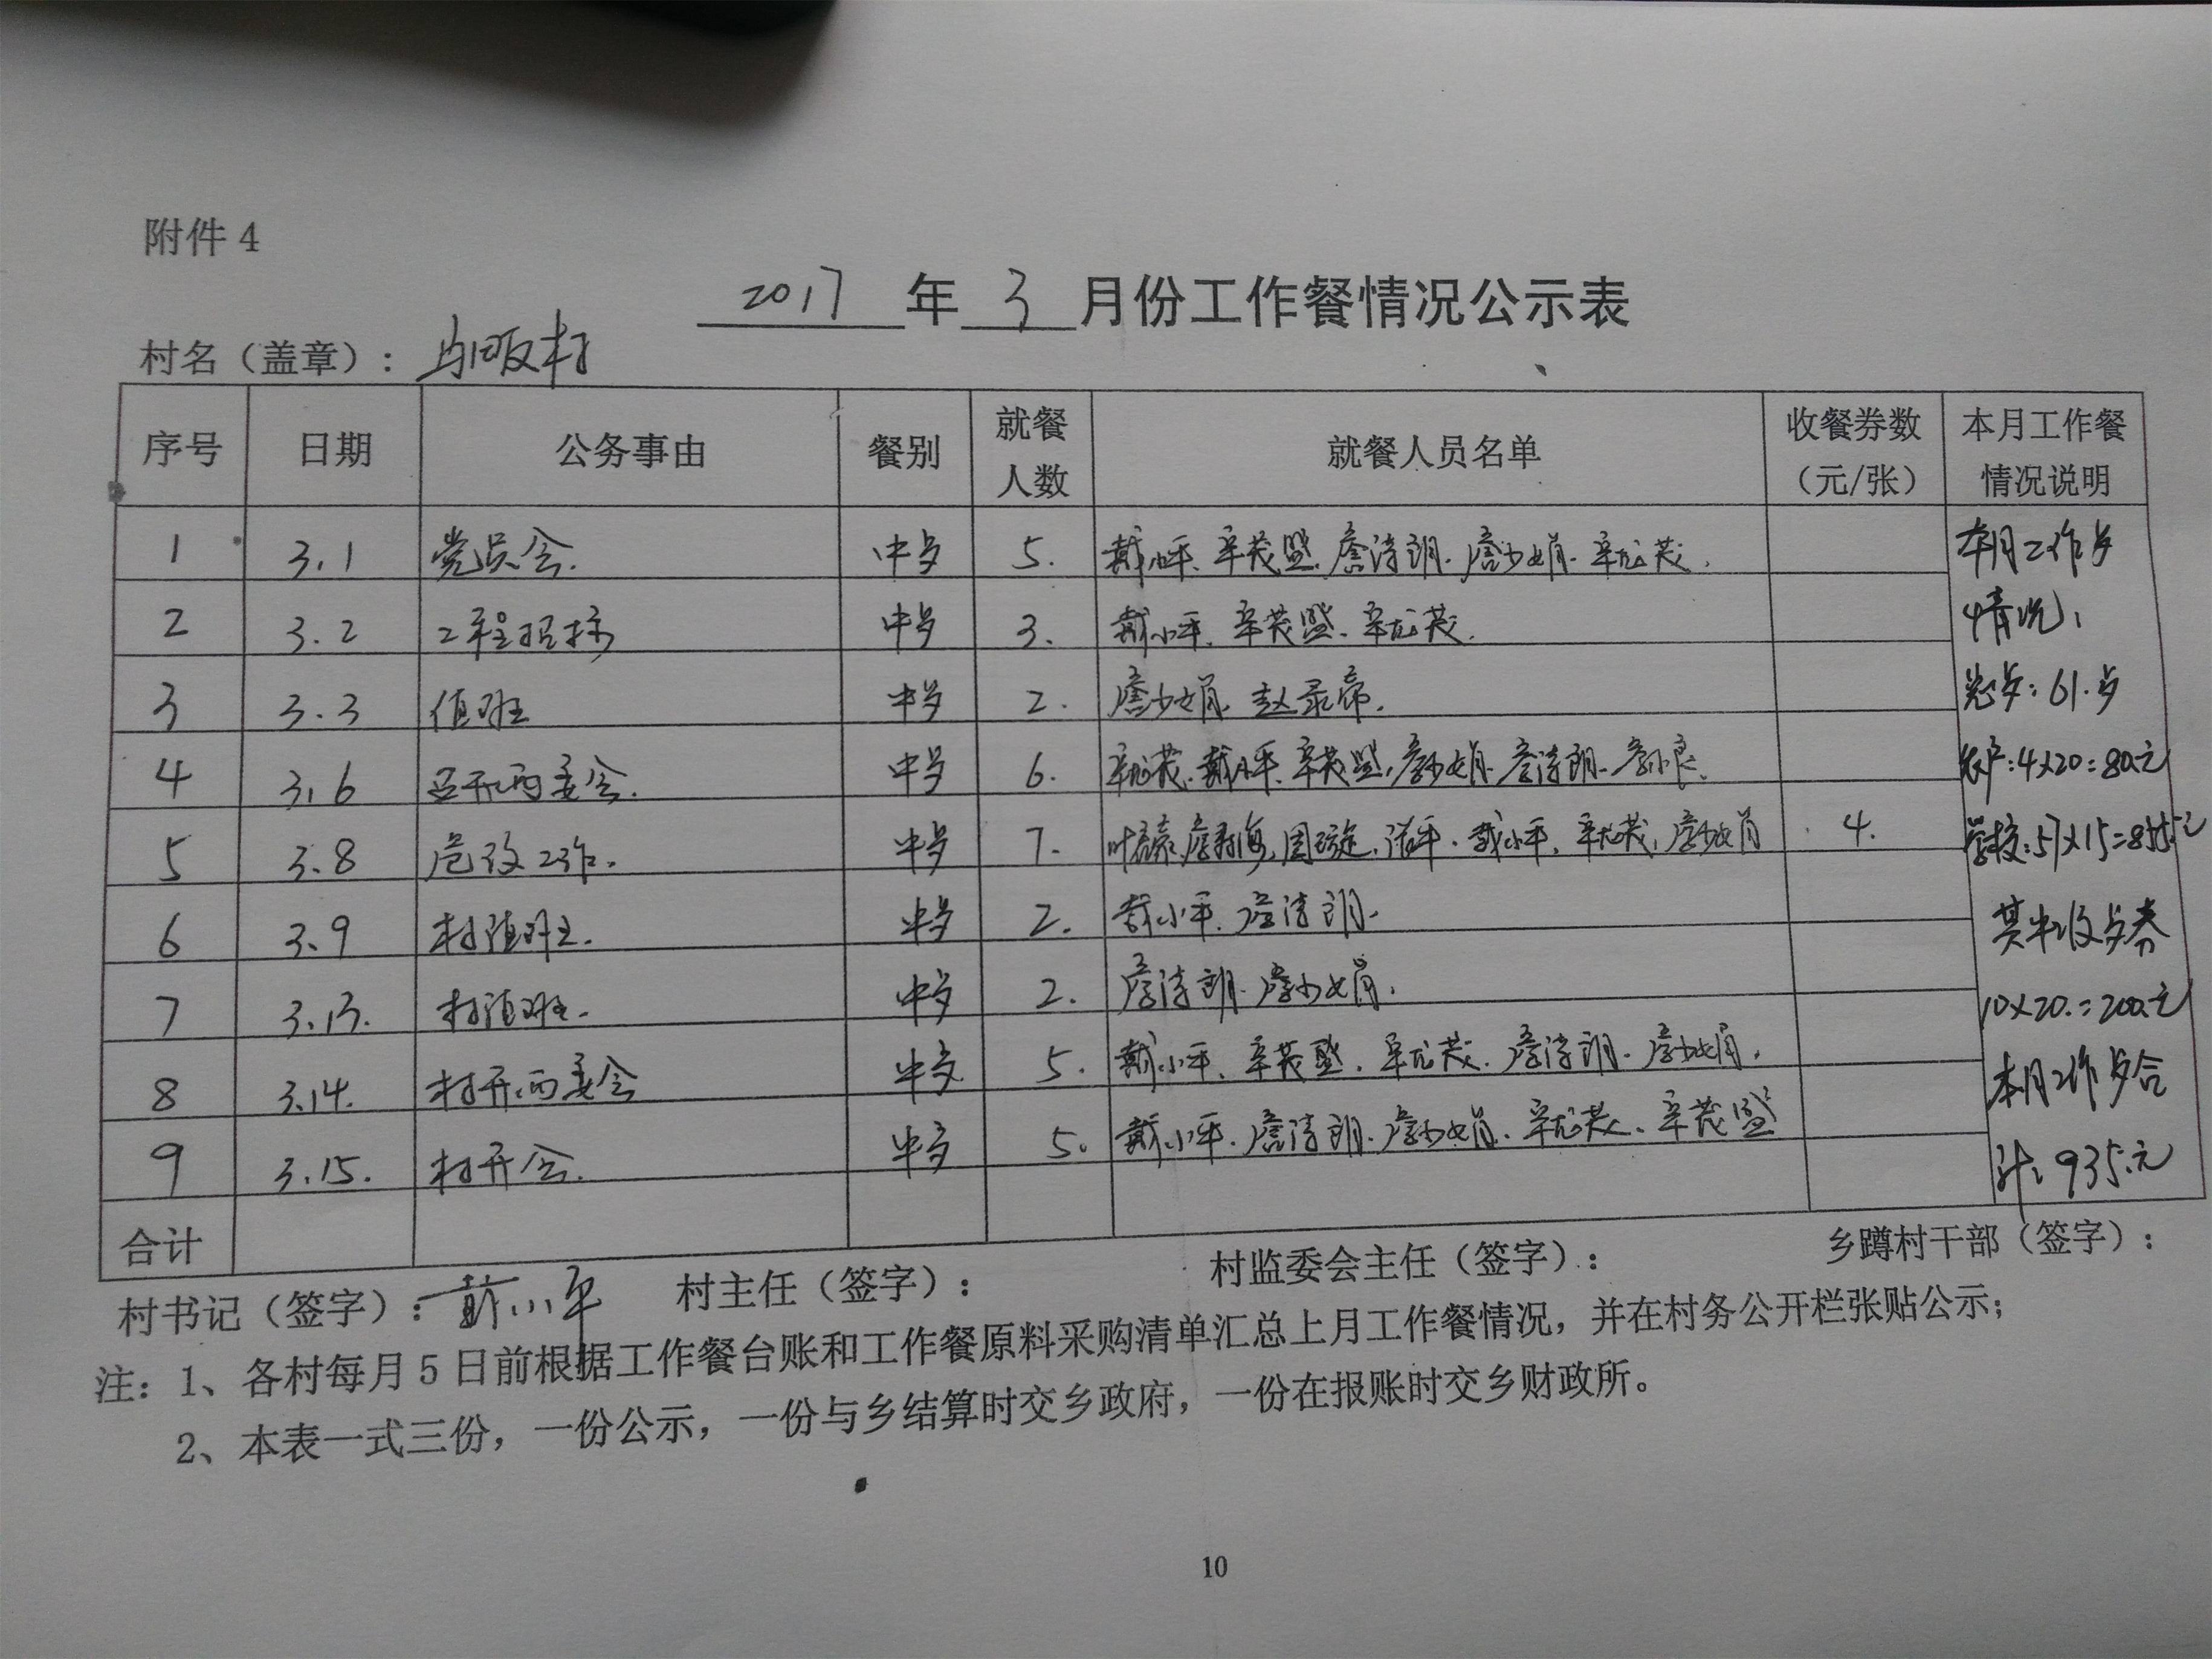 附件 4
2017 年 3 月份工作餐情况公示表
村名（盖章）：畈村
序号 日期 公务事由 餐别 就餐人数 就餐人员名单 收餐券数（元/张） 本月工作餐情况说明
1 3.1 党员会. 中歺 5. 戴小平、辛茂盛、詹清朗、詹少娟、辛龙茂.
2 3.2 工程招标 中歺 3. 戴小平、辛茂盛、辛龙茂.
3 3.3 值班 中歺 2. 詹少娟、赵
4 3.6 召开两委会. 中歺 6. 辛龙茂、戴小平、辛茂盛、詹少娟、詹清朗、詹小良、
5 3.8 危改工作. 中歺 7. 戴小平、辛龙茂、詹少娟 4.
6 3.9 村值班. 中歺 2. 戴小平、詹清朗.
7 3.13. 村值班. 中歺 2. 詹清朗、詹少娟.
8 3.14. 村开两委会 中歺 5. 戴小平、辛茂盛、辛龙茂、詹清朗、詹少娟.
9 3.15. 村开会. 中歺 5. 戴小平、詹清朗、詹少娟、辛龙茂、辛茂盛
合计
本月工作歺
情况:
总歺：61.歺
农户:4×20=80元
学校:57×15=855元
其中收歺券
10×20.=200元
本月工作歺合
计:935元
村书记（签字）：戴小平 村主任（签字）： 村监委会主任（签字）： 乡蹲村干部（签字）：
注：1、各村每月 5 日前根据工作餐台账和工作餐原料采购清单汇总上月工作餐情况，并在村务公开栏张贴公示；
2、本表一式三份，一份公示，一份与乡结算时交乡政府，一份在报账时交乡财政所。
10